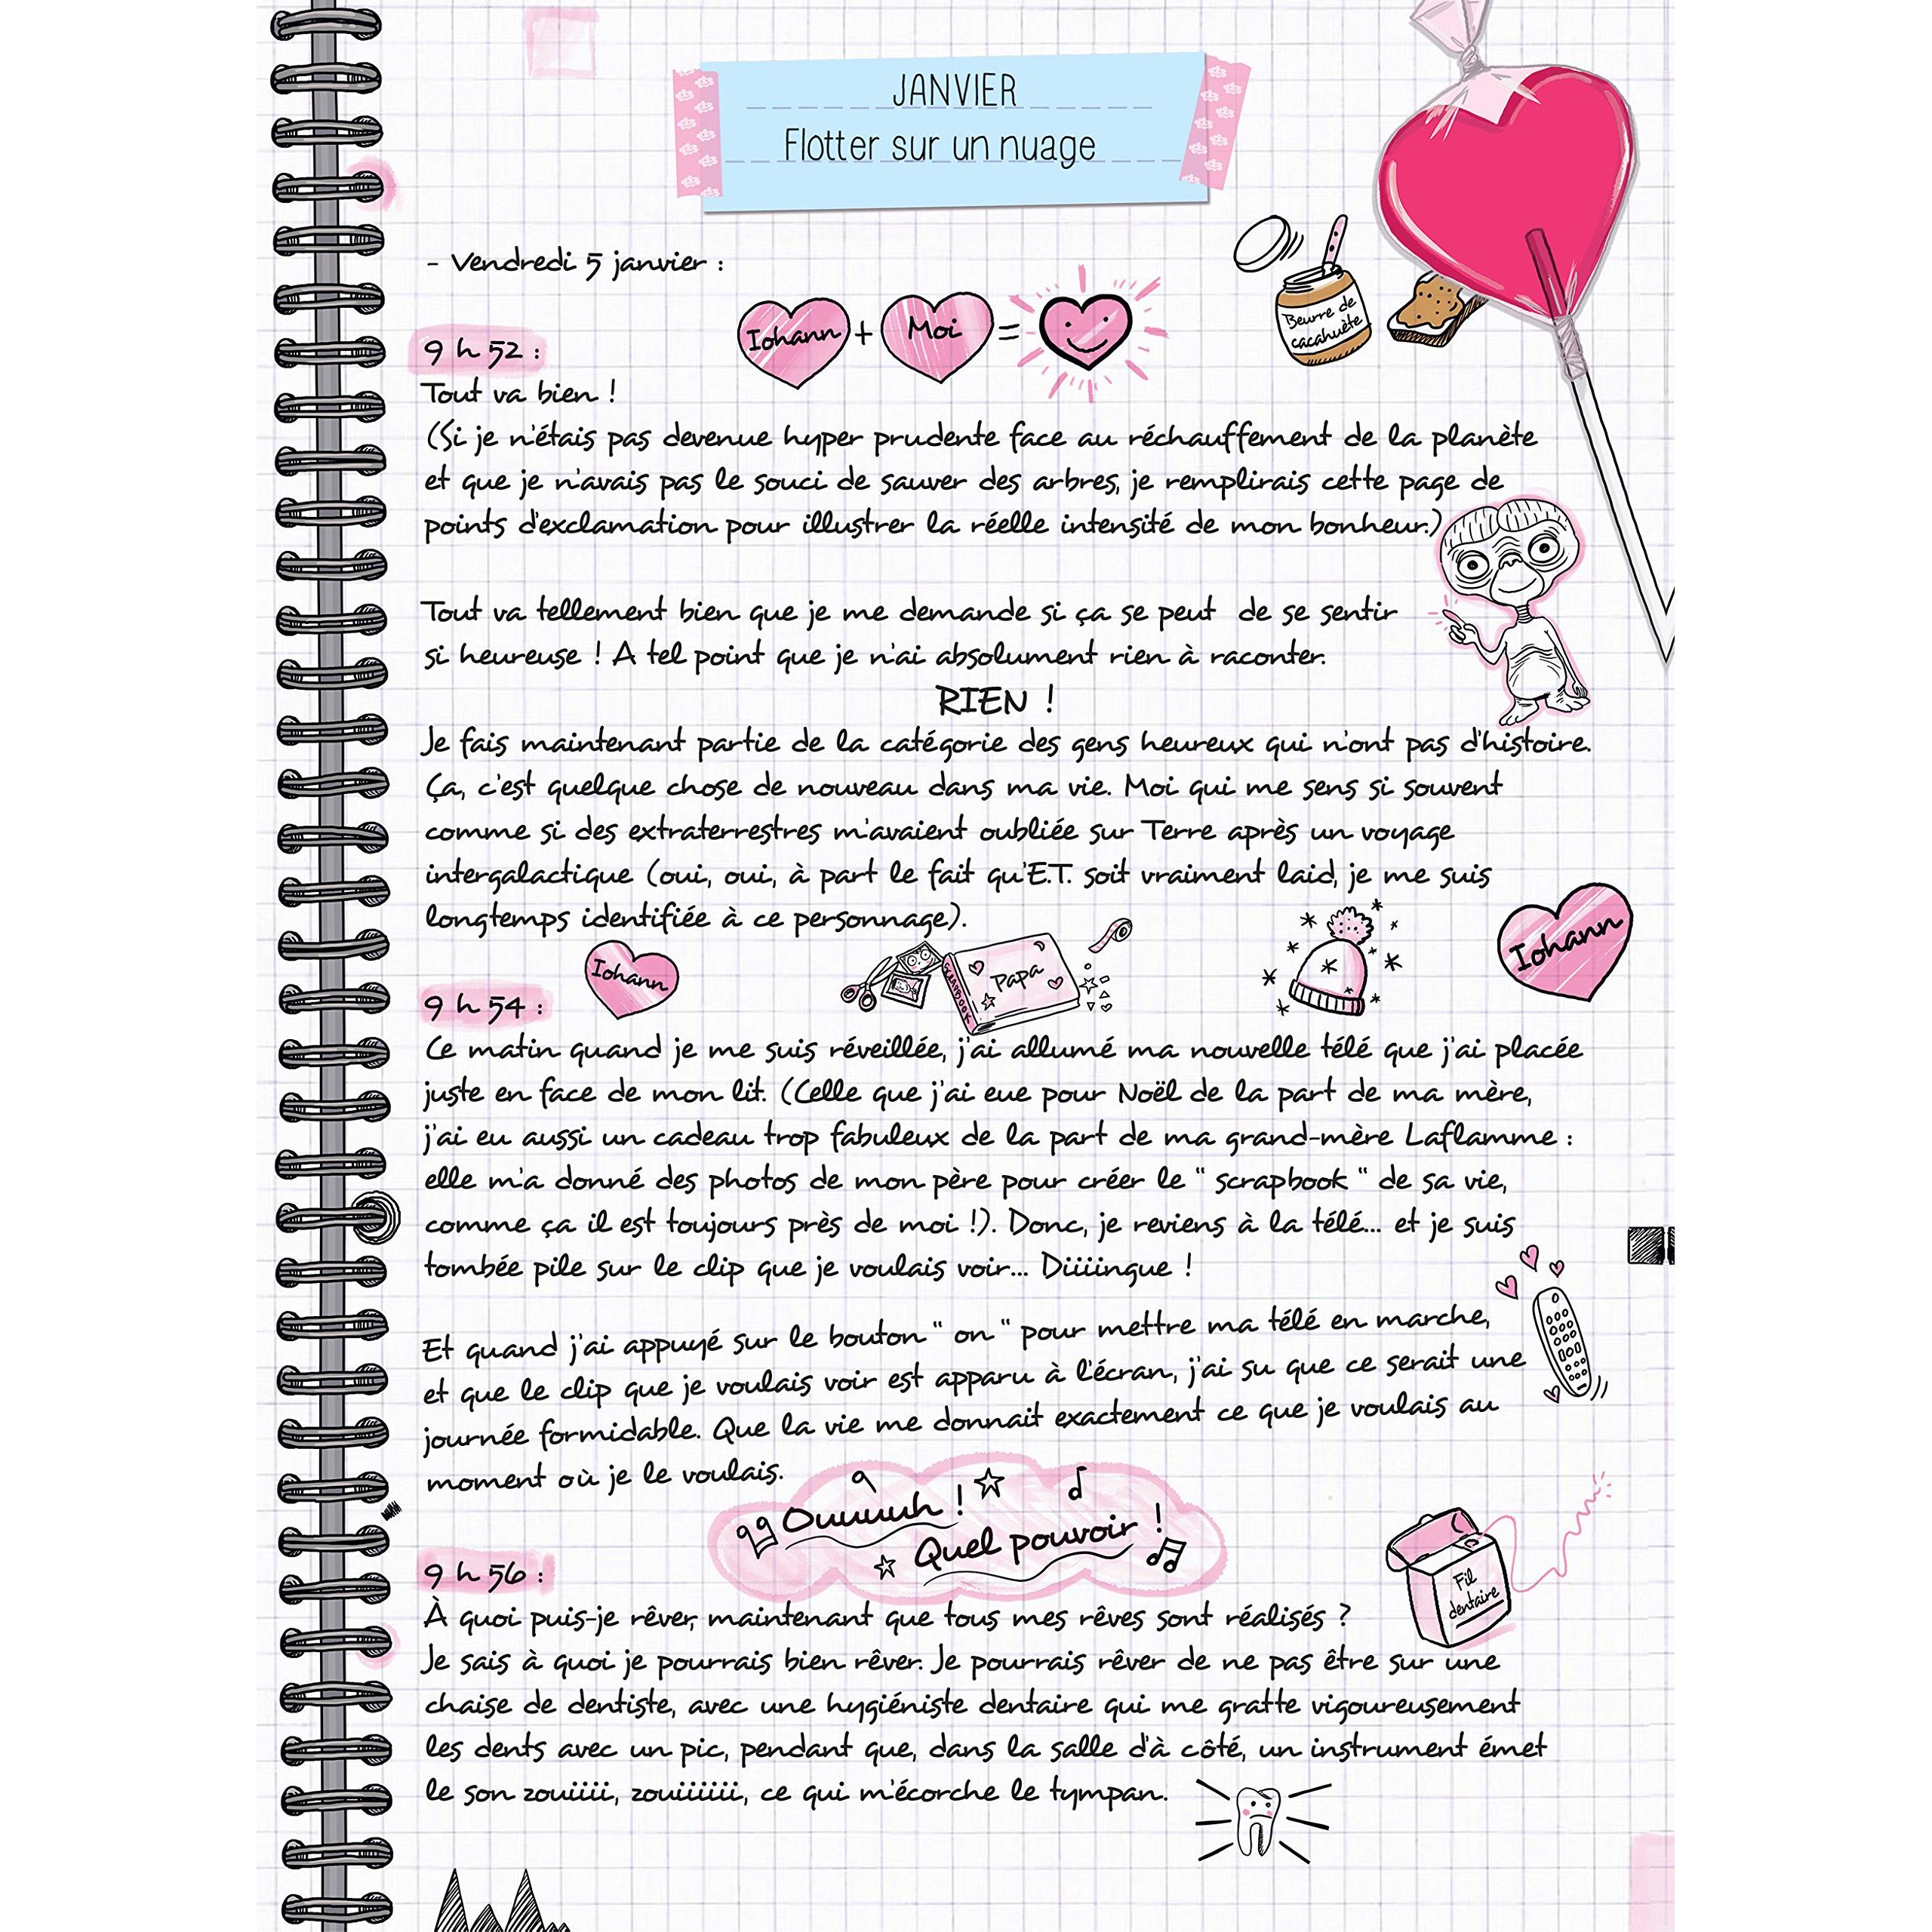 JANVIER
Flotter sur un nuage
- Vendredi 5 janvier :
Iohann + Moi =
Beurre de
cacahuète
9 h 52 :
Tout va bien !
(Si je n'étais pas devenue hyper prudente face au réchauffement de la planète
et que je n'avais pas le souci de sauver des arbres, je remplirais cette page de
points d'exclamation pour illustrer la réelle intensité de mon bonheur.)
Tout va tellement bien que je me demande si ça se peut de se sentir
si heureuse ! A tel point que je n'ai absolument rien à raconter.
RIEN !
Je fais maintenant partie de la catégorie des gens heureux qui n'ont pas d'histoire.
Ça, c'est quelque chose de nouveau dans ma vie. Moi qui me sens si souvent
comme si des extraterrestres m'avaient oubliée sur Terre après un voyage
intergalactique (oui, oui, à part le fait qu'E.T. soit vraiment laid, je me suis
longtemps identifiée à ce personnage).
Iohann
Iohann
SCRAPBOOK
Papa
9 h 54 :
Ce matin quand je me suis réveillée, j'ai allumé ma nouvelle télé que j'ai placée
juste en face de mon lit. (Celle que j'ai eue pour Noël de la part de ma mère,
j'ai eu aussi un cadeau trop fabuleux de la part de ma grand-mère Laflamme :
elle m'a donné des photos de mon père pour créer le " scrapbook " de sa vie,
comme ça il est toujours près de moi !). Donc, je reviens à la télé... et je suis
tombée pile sur le clip que je voulais voir... Diiiingue !
Et quand j'ai appuyé sur le bouton " on " pour mettre ma télé en marche,
et que le clip que je voulais voir est apparu à l'écran, j'ai su que ce serait une
journée formidable. Que la vie me donnait exactement ce que je voulais au
moment où je le voulais.
Ouuuuh !
Quel pouvoir !
Fil
dentaire
9 h 56 :
À quoi puis-je rêver, maintenant que tous mes rêves sont réalisés ?
Je sais à quoi je pourrais bien rêver. Je pourrais rêver de ne pas être sur une
chaise de dentiste, avec une hygiéniste dentaire qui me gratte vigoureusement
les dents avec un pic, pendant que, dans la salle d'à côté, un instrument émet
le son zouiiii, zouiiiiii, ce qui m'écorche le tympan.